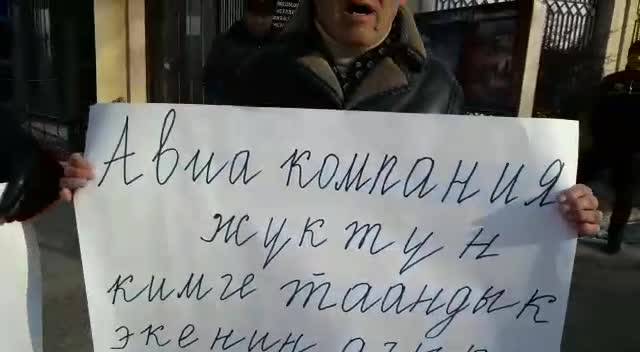 Авиа компания
жуктун
кимге таандык
экенин